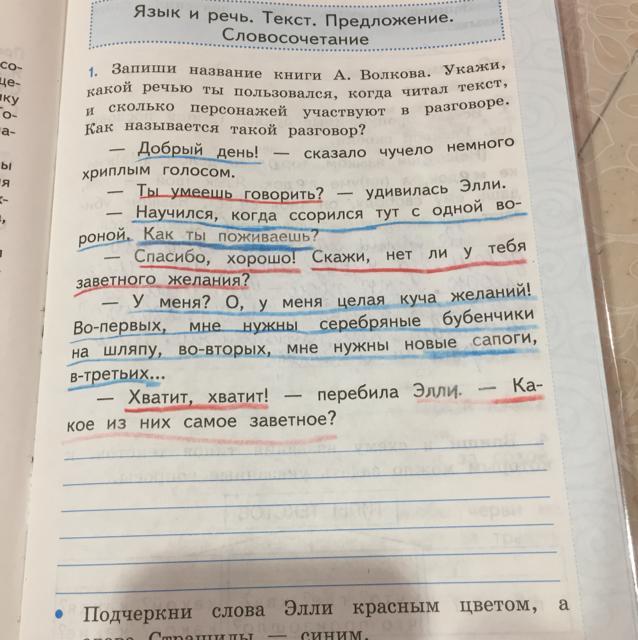 Язык и речь. Текст. Предложение.
Словосочетание
1. Запиши название книги А. Волкова. Укажи,
какой речью ты пользовался, когда читал текст,
и сколько персонажей участвуют в разговоре.
Как называется такой разговор?
— Добрый день! — сказало чучело немного
хриплым голосом.
— Ты умеешь говорить? — удивилась Элли.
— Научился, когда ссорился тут с одной во-
роной. Как ты поживаешь?
— Спасибо, хорошо! Скажи, нет ли у тебя
заветного желания?
— У меня? О, у меня целая куча желаний!
Во-первых, мне нужны серебряные бубенчики
на шляпу, во-вторых, мне нужны новые сапоги,
в-третьих...
— Хватит, хватит! — перебила Элли. — Ка-
кое из них самое заветное?
• Подчеркни слова Элли красным цветом, а
слова Страшилы — синим.